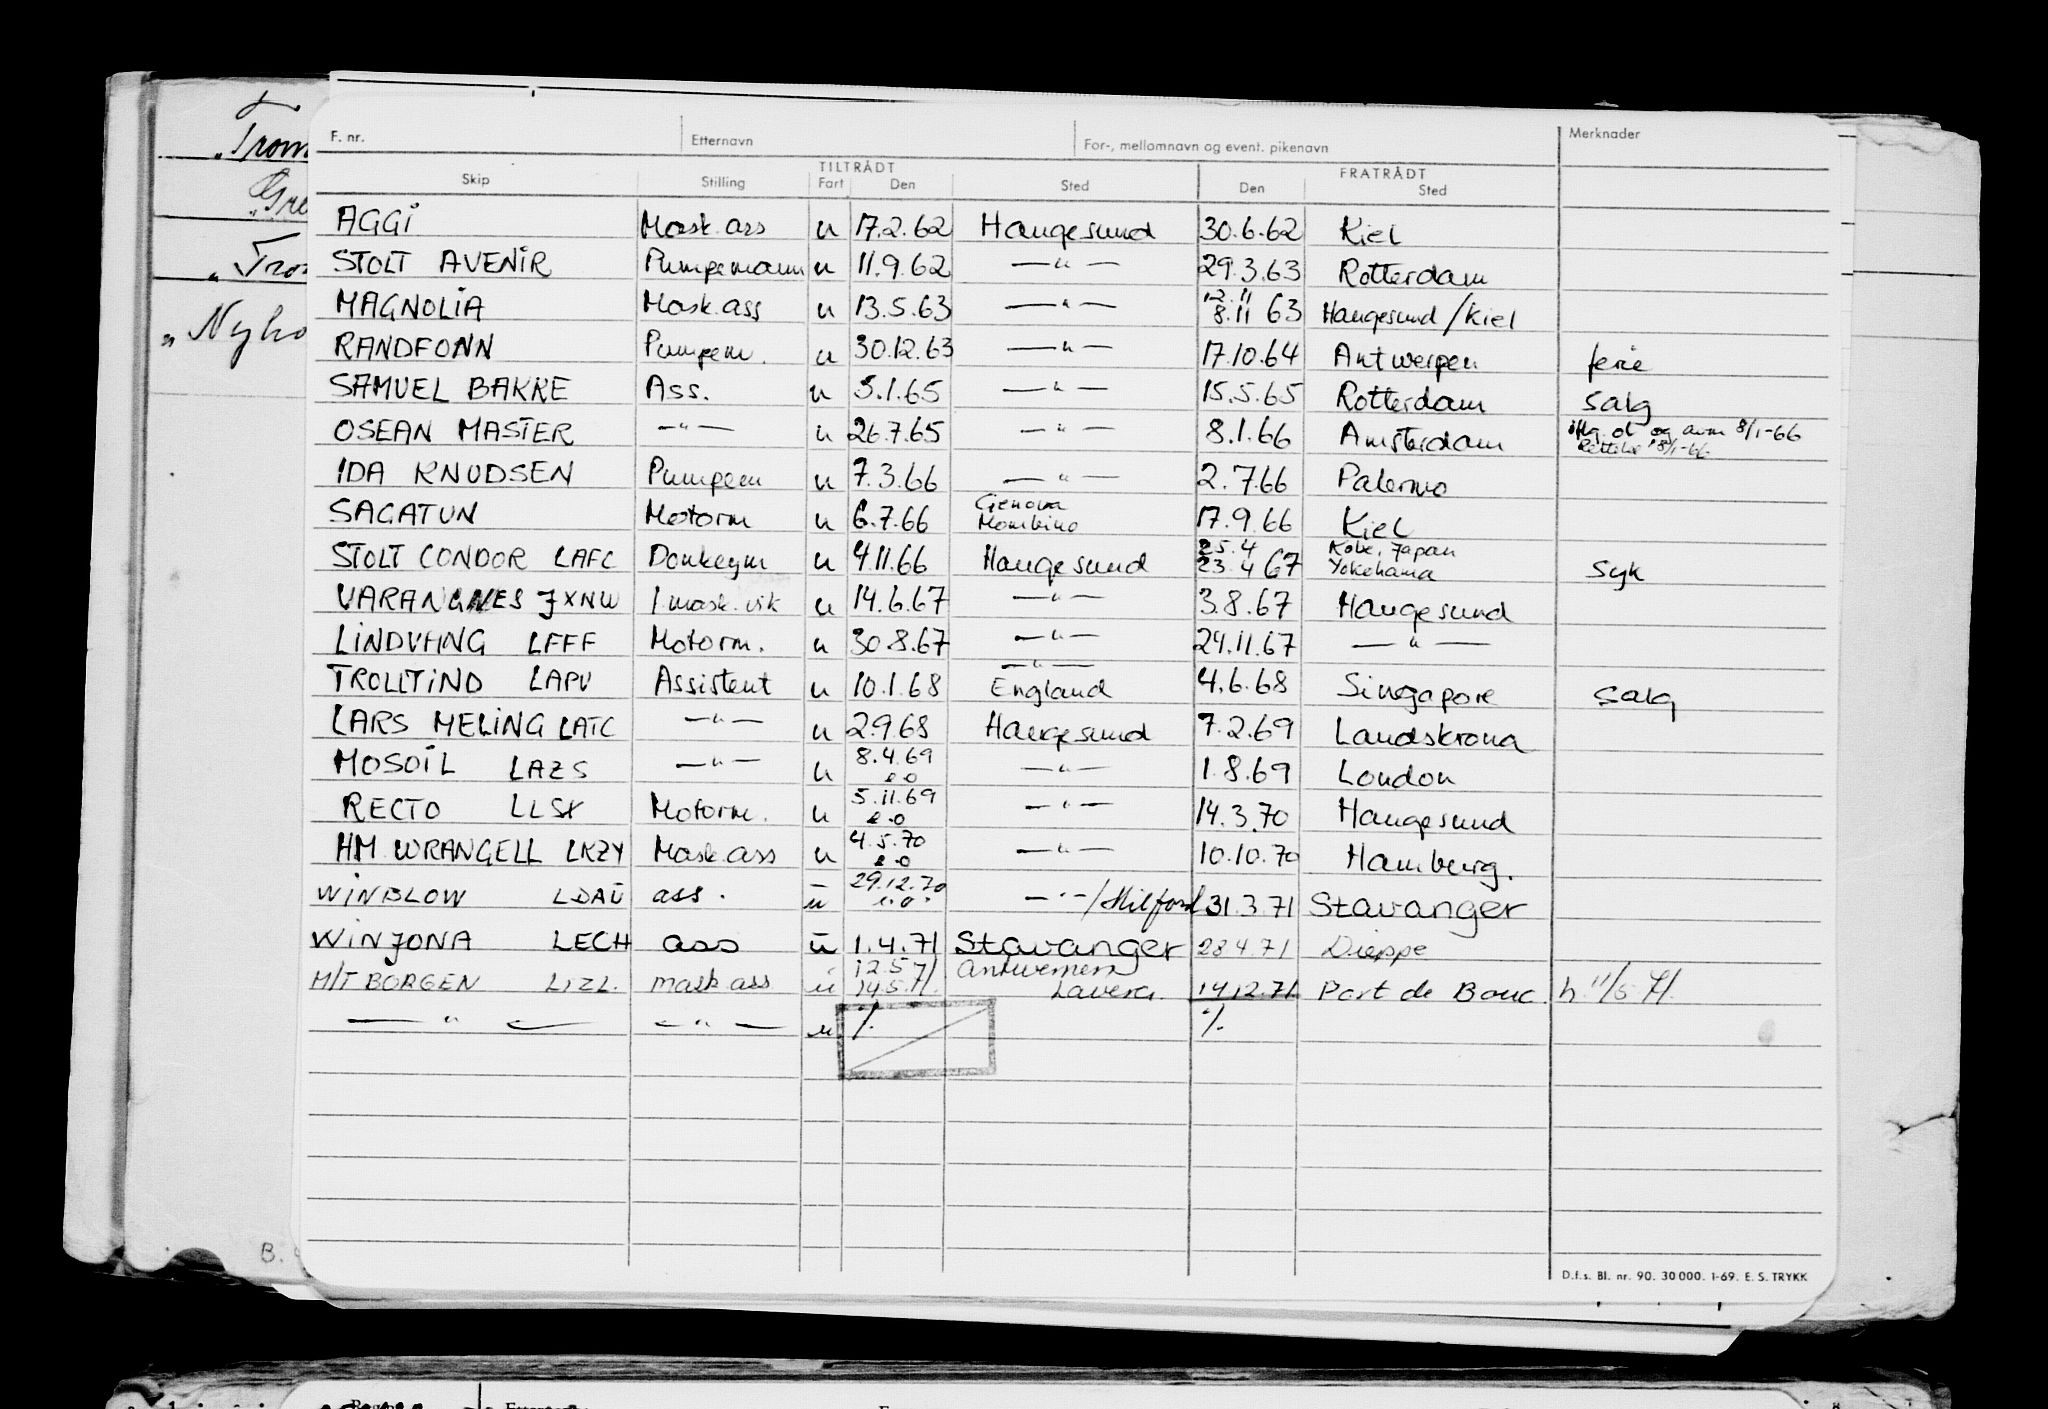 F. nr. Etternavn For-, mellomnavn og event. pikenavn Merknader
TILTRÅDT FRATRÅDT
Skip Stilling Fart Den Sted Den Sted
AGGI Mask. ass u 17.2.62 Haugesund 30.6.62 Kiel
STOLT AVENIR Pumpemann u 11.9.62 —"— 29.3.63 Rotterdam
MAGNOLIA Mask. ass u 13.5.63 —"— 12.11 8.11 63 Haugesund/Kiel
RANDFONN Pumpem. u 30.12.63 —"— 17.10.64 Antwerpen ferie
SAMUEL BAKKE Ass. u 5.1.65 —"— 15.5.65 Rotterdam salg
OSEAN MASTER —"— u 26.7.65 —"— 8.1.66 Amsterdam iflg. ot og avm 8/1-66
8/1-66
IDA KNUDSEN Pumpem u 7.3.66 —"— 2.7.66 Palermo
SAGATUN Motorm u 6.7.66 Genova 17.9.66 Kiel
STOLT CONDOR LAFC Donkeym u 4.11.66 Haugesund 25.4 23.4 67 Kobe, Japan Yokohama syk
VARANGNES JXNW 1. mask. vik u 14.6.67 —"— 3.8.67 Haugesund
LINDVANG LFFF Motorm. u 30.8.67 —"— 29.11.67 —"—
TROLLTIND LAPV Assistent u 10.1.68 —"— England 4.6.68 Singapore salg
LARS MELING LATC —"— u 2.9.68 Haugesund 7.2.69 Landskrona
MOSOIL LAZS —"— u 8.4.69 e.o —"— 1.8.69 London
RECTO LLSX Motorm. u 5.11.69 e.o —"— 14.3.70 Haugesund
HM WRANGELL LKZY Mask. ass u 4.5.70 e.o —"— 10.10.70 Hamburg.
WINBLOW LDAU ass. u 29.12.70 e.o. —"—/Milford 31.3.71 Stavanger
WINJONA LECH ass u 1.4.71 Stavanger 28.4.71 Dieppe
M/T BORGEN LIZL. mask ass u 12.5 14.5.71. Antwerpen Lavera. 14.12.71 Port de Bouc h. 11/5 71.
—"— —"— u ./. ./.
D.f.s. Bl. nr. 90. 30 000. 1-69. E. S. TRYKK